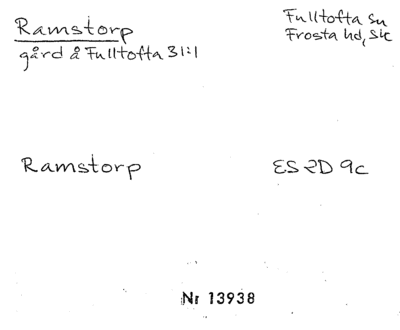 Ramstorp
gård å Fulltofta 31:1
Fulltofta sn
Frosta hd, Sk
Ramstorp
ES 2D 9c
Nr 13938